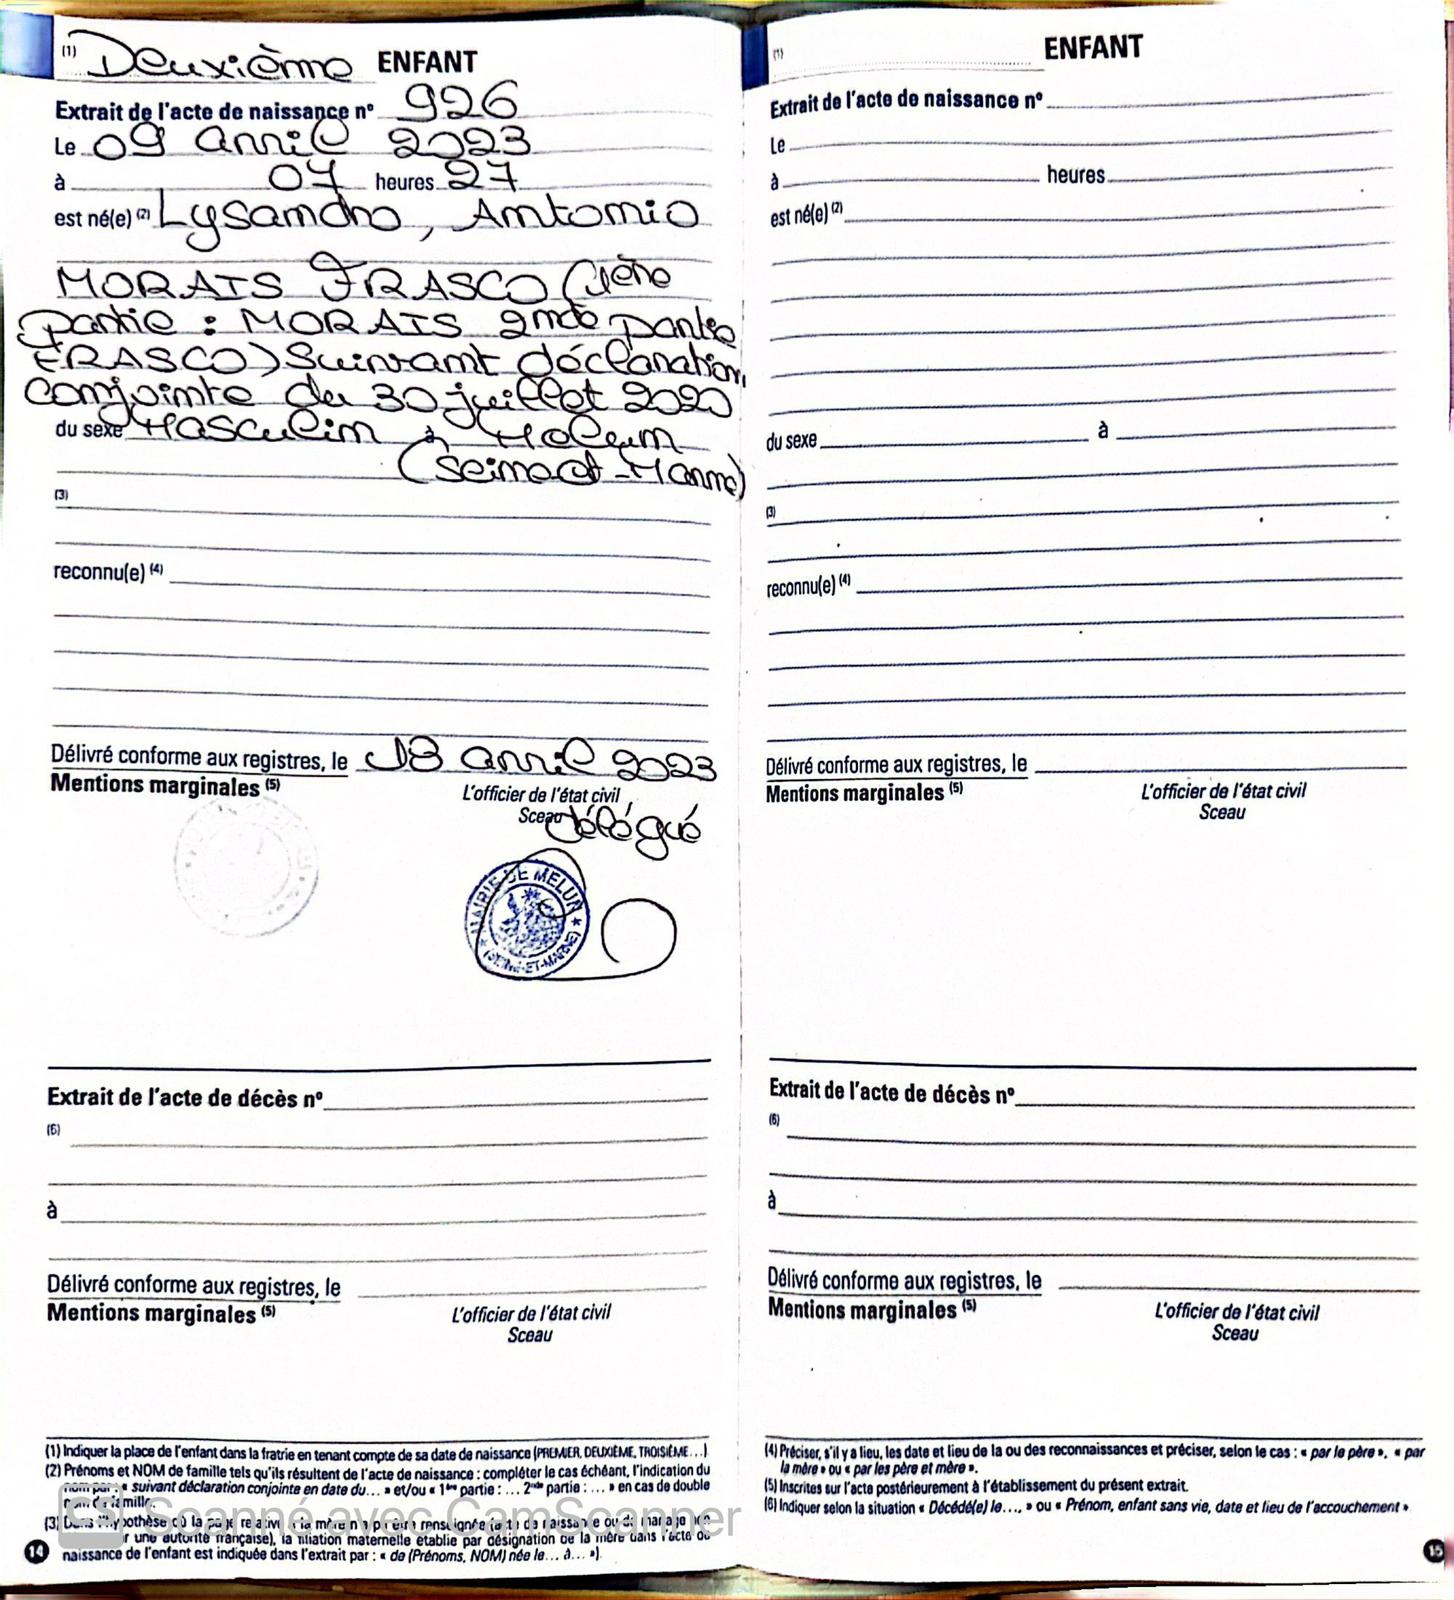 (1) Deuxième ENFANT
Extrait de l'acte de naissance nº 926
Le 09 avril 2023
à 07 heures 27
est né(e) (2) Lysandro, Antonio
MORAIS FRASCO (1ère
partie : MORAIS 2nde partie
FRASCO) Suivant déclaration
conjointe du 30 juillet 2020
du sexe Masculin à Melun
(Seine-et-Marne)
(3)
reconnu(e) (4)
Délivré conforme aux registres, le 18 avril 2023
Mentions marginales (5)
L'officier de l'état civil
Sceau
délégué
MAIRIE DE MELUN
(SEINE-ET-MARNE)
Extrait de l'acte de décès nº
(6)
à
Délivré conforme aux registres, le
Mentions marginales (5)
L'officier de l'état civil
Sceau
(1) Indiquer la place de l'enfant dans la fratrie en tenant compte de sa date de naissance (PREMIER, DEUXIÈME, TROISIÈME…)
(2) Prénoms et NOM de famille tels qu'ils résultent de l'acte de naissance : compléter le cas échéant, l'indication du
nom par : « suivant déclaration conjointe en date du… » et/ou « 1ère partie : … 2nde partie : … » en cas de double
nom de famille.
(3) Dans l'hypothèse où la page relative à la mère n'a pu être renseignée (acte de naissance ou de mariage non
par une autorité française), la filiation maternelle établie par désignation de la mère dans l'acte de
naissance de l'enfant est indiquée dans l'extrait par : « de (Prénoms, NOM) née le… à… »).
14
CS Scanné avec CamScanner
(1) ENFANT
Extrait de l'acte de naissance nº
Le
à heures
est né(e) (2)
du sexe à
(3)
reconnu(e) (4)
Délivré conforme aux registres, le
Mentions marginales (5)
L'officier de l'état civil
Sceau
Extrait de l'acte de décès nº
(6)
à
Délivré conforme aux registres, le
Mentions marginales (5)
L'officier de l'état civil
Sceau
(4) Préciser, s'il y a lieu, les date et lieu de la ou des reconnaissances et préciser, selon le cas : « par le père », « par
la mère » ou « par les père et mère ».
(5) Inscrites sur l'acte postérieurement à l'établissement du présent extrait.
(6) Indiquer selon la situation « Décédé(e) le…, » ou « Prénom, enfant sans vie, date et lieu de l'accouchement ».
15